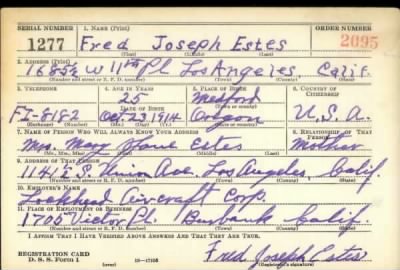 SERIAL NUMBER 1. NAME (Print) ORDER NUMBER
1277 Fred Joseph Estes 2095
2. ADDRESS (Print)
1685½ W 11th Pl Los Angeles, Calif.
(Number and street or R. F. D. number) (Town) (County) (State)
3. TELEPHONE 4. AGE IN YEARS 5. PLACE OF BIRTH 6. COUNTRY OF CITIZENSHIP
25 Medford
DATE OF BIRTH (Town or county)
FI-8182 Oct. 23 1914 Oregon U.S.A.
(Exchange) (Number) (Mo.) (Day) (Yr.) (State or country)
7. NAME OF PERSON WHO WILL ALWAYS KNOW YOUR ADDRESS 8. RELATIONSHIP OF THAT PERSON
Mrs. Estes Mother
(Mr., Mrs., Miss) (First) (Middle) (Last)
9. ADDRESS OF THAT PERSON
1141 S. Union Ave. Los Angeles, Calif.
(Number and street or R. F. D. number) (Town) (County) (State)
10. EMPLOYER'S NAME
Lockheed Aircraft Corp.
11. PLACE OF EMPLOYMENT OR BUSINESS
1705 Victor Pl. Burbank Calif.
(Number and street or R. F. D. number) (Town) (County) (State)
I AFFIRM THAT I HAVE VERIFIED ABOVE ANSWERS AND THAT THEY ARE TRUE.
REGISTRATION CARD Fred Joseph Estes
D. S. S. FORM 1 16—17105 (Registrant's signature)